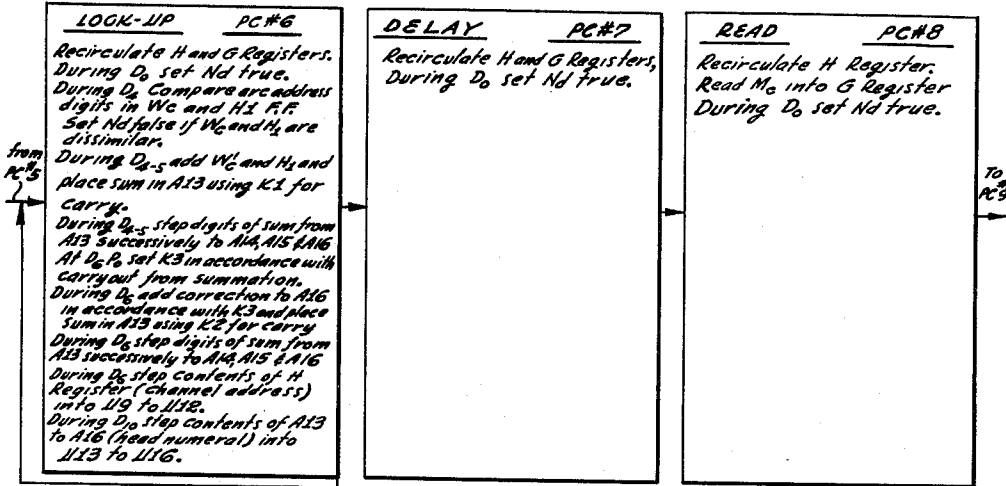 LOOK-UP PC#6
Recirculate H and G Registers.
During D₀ set Nd true.
During D₄ Compare arc address
digits in Wc and H1 F.F.
Set Nd false if Wc and H₁ are
dissimilar.
During D₄₋₅ add W'c and H₁ and
place sum in A13 using K1 for
carry.
During D₄₋₅ step digits of sum from
A13 successively to A14, A15 & A16
At D₆ P₀ set K3 in accordance with
carryout from summation.
During D₆ add correction to A16
in accordance with K3 and place
sum in A13 using K2 for carry
During D₆ step digits of sum from
A13 successively to A14, A15 & A16
During D₆ step contents of H
Register (channel address)
into U9 to U12.
During D₁₀ step contents of A13
to A16 (head numeral) into
U13 to U16.
from
PC#5
DELAY PC#7
Recirculate H and G Registers,
During D₀ set Nd true.
READ PC#8
Recirculate H Register.
Read Mc into G Register
During D₀ set Nd true.
To
PC#9